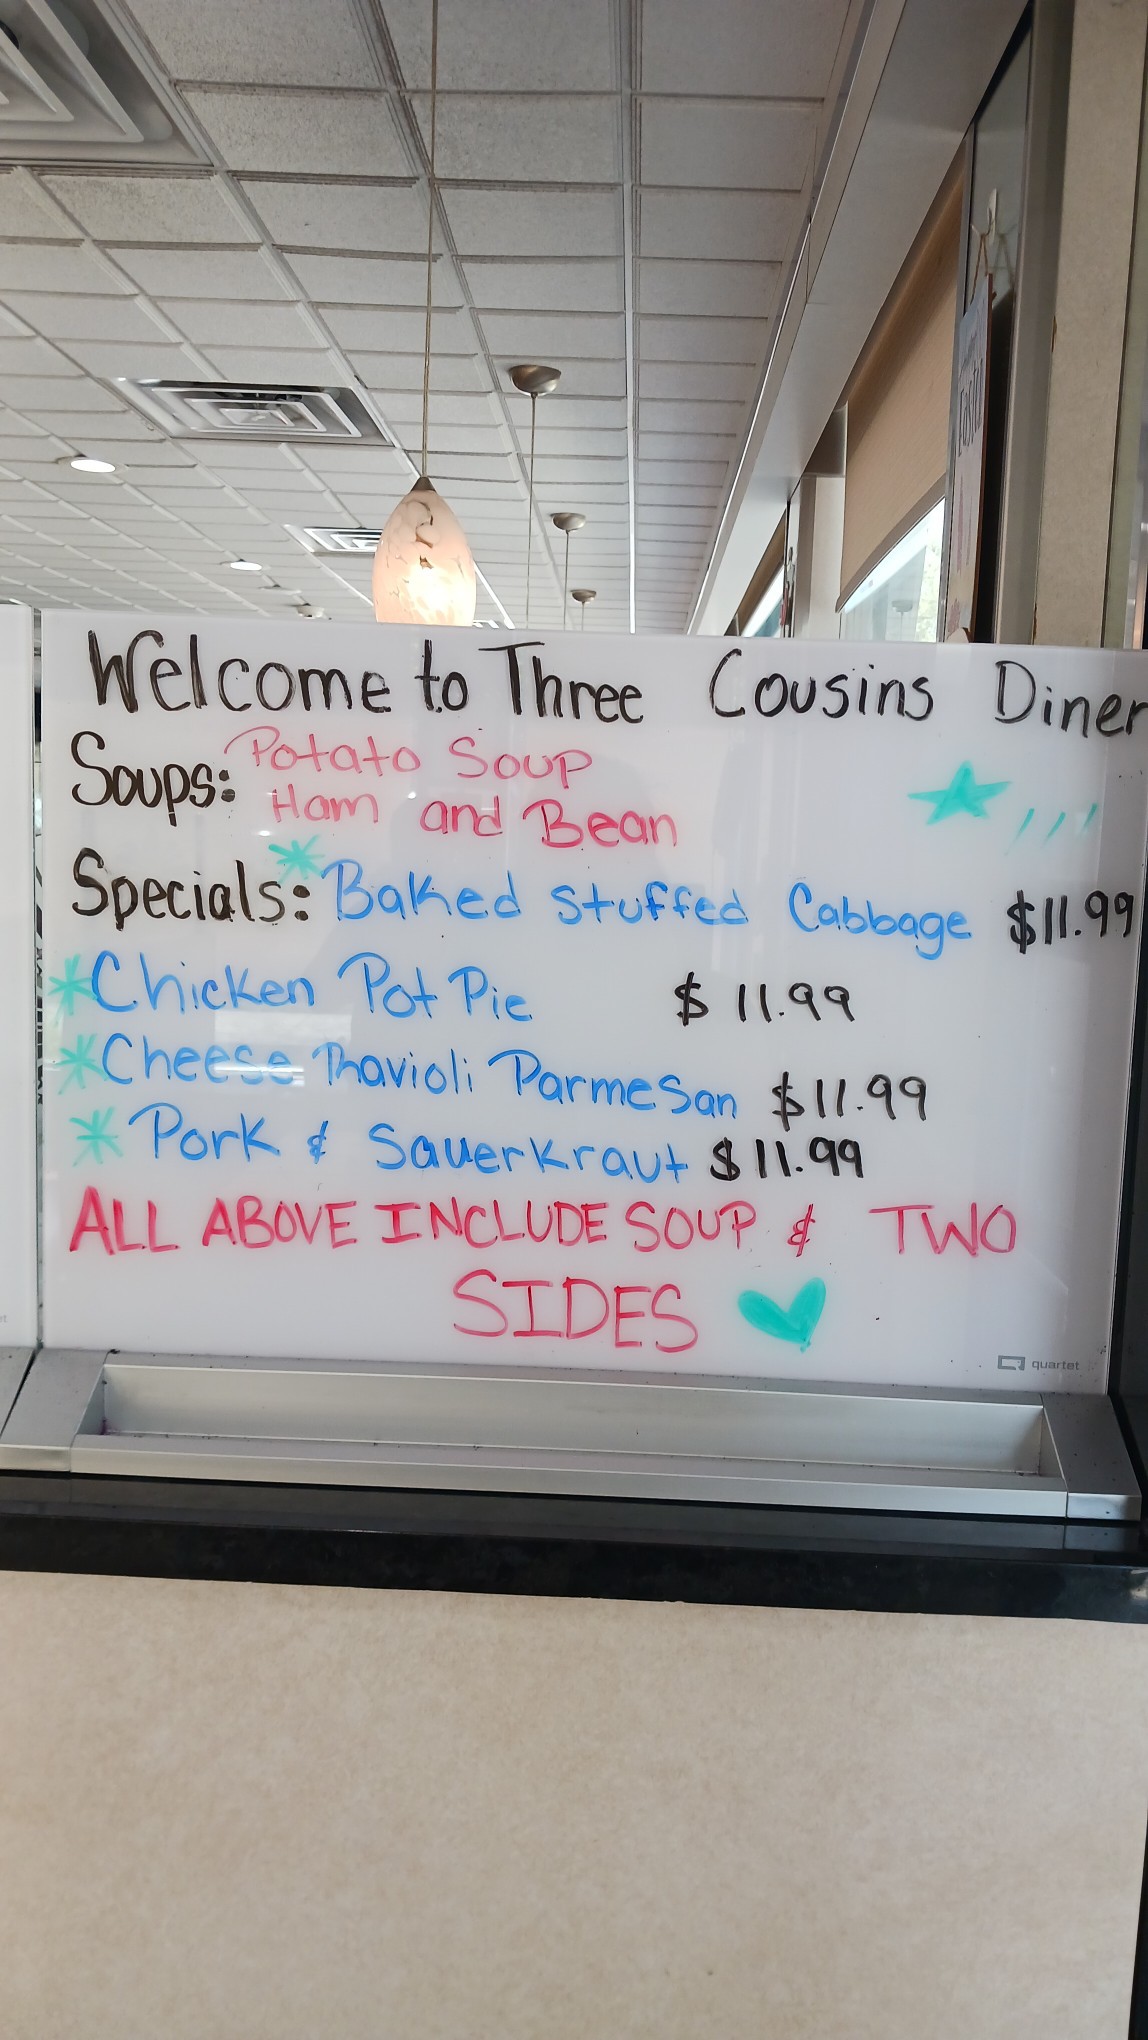 Welcome to Three Cousins Diner
Soups: Potato Soup
Ham and Bean
Specials: *Baked Stuffed Cabbage $11.99
*Chicken Pot Pie $11.99
*Cheese Ravioli Parmesan $11.99
*Pork & Sauerkraut $11.99
ALL ABOVE INCLUDE SOUP & TWO
SIDES
quartet